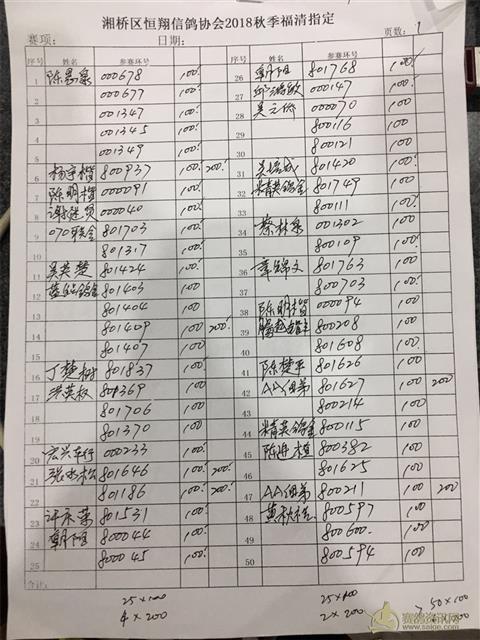 湘桥区恒翔信鸽协会2018秋季福清指定
赛项： 日期： 页数：1
序号 参赛环号 序号 参赛环号
1 000678 100 26 朝阳 801768 100
2 000677 100 27 000147 100
3 001347 100 28 吴元侨 000070 100
4 001345 100 29 800116 100
5 001349 100 30 800121 100
6 杨宇楷 800937 100 200 31 801420 100
7 陈明楷 000091 100 32 精英鸽舍 801749 100
8 000040 100 33 800111 100
9 070联合 801703 100 34 蔡林泉 001302 100
10 801317 100 35 800109 100
11 吴英楚 801424 100 36 章锦文 801763 100
12 801403 100 37 800703 100
13 801404 100 38 陈明楷 000094 100
14 801409 100 200 39 800208 100
15 801407 100 40 801608 100
16 丁楚树 801837 100 41 陈楚平 801626 100
17 洪英权 801369 100 42 AA组弟 801627 100 200
18 801706 100 43 800214 100
19 801370 100 44 精英鸽舍 800115 100
20 宏兴车行 000233 100 45 800382 100
21 801646 100 200 46 801625 100
22 801186 100 200 47 AA组弟 800211 100 200
23 许永荣 801531 100 48 800597 100
24 朝阳 800044 100 49 800600 100
25 800045 100 50 800594 100
合计：
25×100 25×100 50×100
4×200 2×200
赛鸽资讯网
www.saige.com